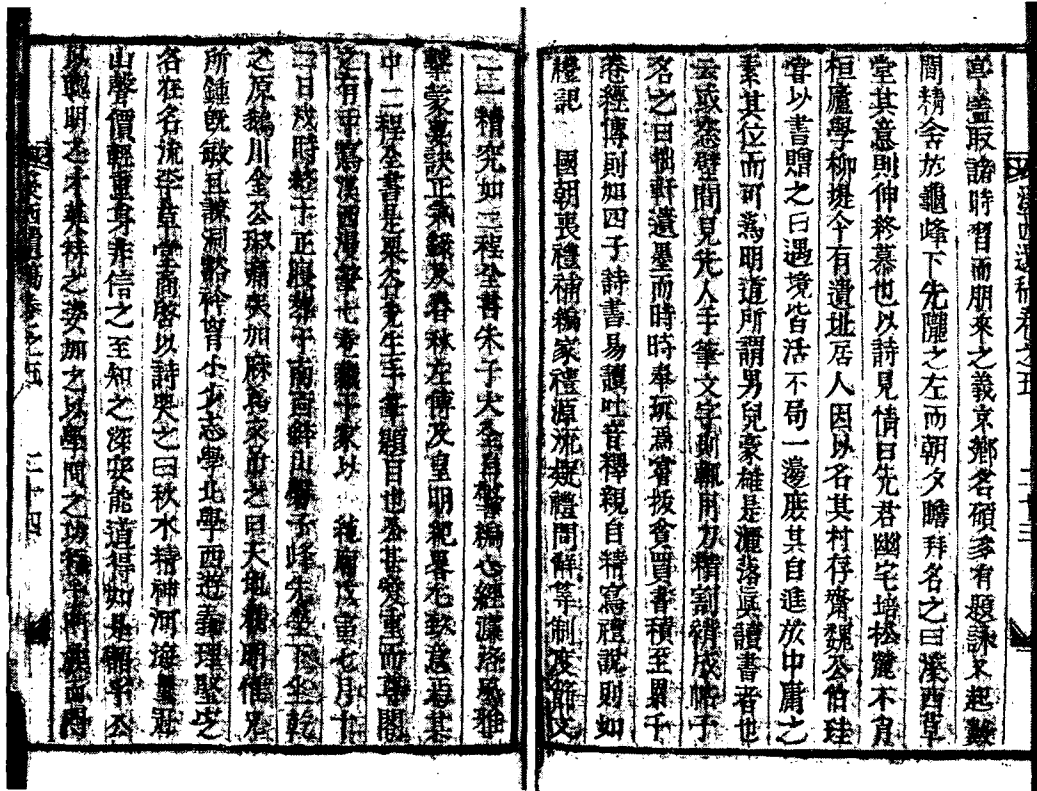 亭盖取諸時習而朋來之義京鄉名碩多有題詠又起數
間精舍於龜峰下先隴之左而朝夕瞻拜名之曰溪西草
堂其意則伸終慕也以詩見情曰先君幽宅培松麓不肖
桓廬學柳堤今有遺址居人因以名其村存齋魏公伯珪
嘗以書贈之曰遇境皆活不局一邊庶其自進於中庸之
素其位而可蔫明道所謂男兒豪雄是灑落眞讀書者也
云或窓壁間見先人手筆文字則輒用刀精割褙成帖子
名之曰 軒遺墨而時時奉玩焉嘗拔貪買書積至累千
卷經傳則如四子詩書易讀吐音釋親自精寫禮說則如
禮記 國朝喪禮補編家禮源流疑禮問解等制度節文
一一精究如二程全書朱子大全自警編心經濂洛風雅
擊蒙要訣正氣錄及春秋左傳及皇明紀畧尤致意焉其
中二程全書是栗谷先生手筆題目也公甚愛重而尊閣
之有 溪西漫筆七卷藏于家以 純廟戊寅七月十
二日戌時終于正寢葬于南面 山 子峰先塋下坐乾
之原鵝川金公 痛哭加麻爲 之曰天地 明 
所鍾旣敏且諒洞豁衿胷小少志學北學西遊義理堅
名在名流李草堂商啓以詩輿之曰秋水精神河海量 
山聲價輕重身非信之至知之深安能道得如是 乎公
以聰明之才英粹之姿加之以學問之功 門
溪西遺稿卷之五 二十三
溪西遺稿卷之五 二十四